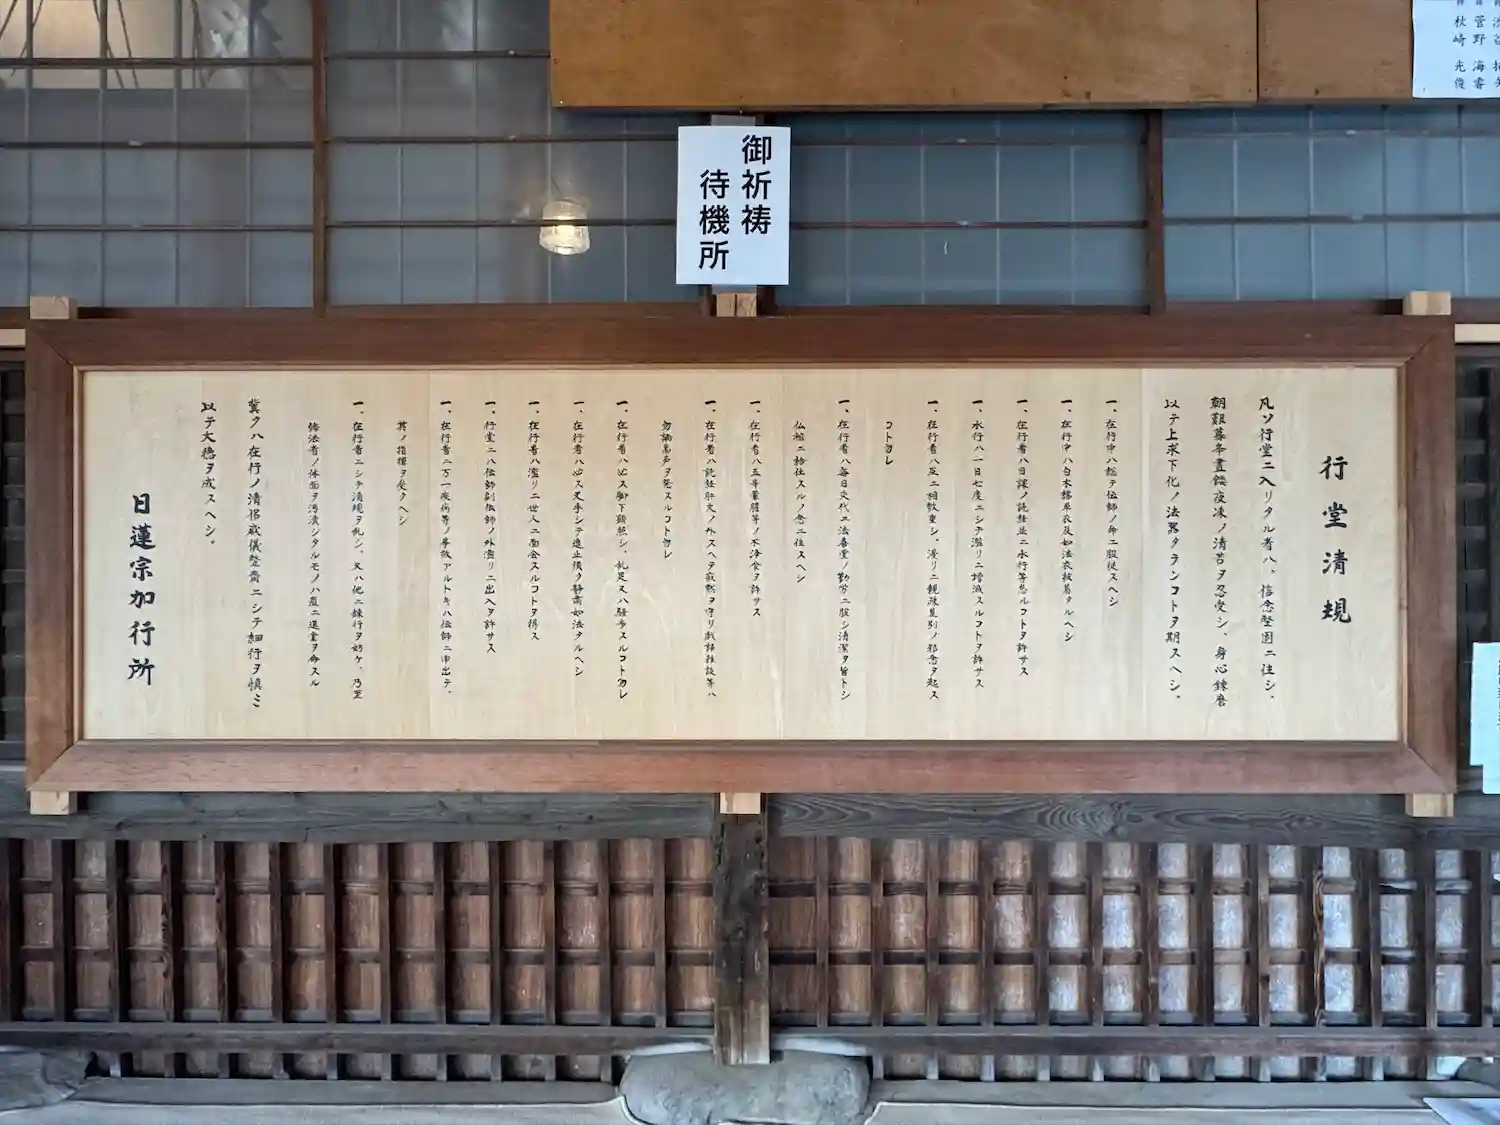 御祈祷
待機所
行堂清規
凡ソ行堂ニ入リタル者ハ、信念堅固ニ住シ、
朝艱暮辛晝餧夜凍ノ清苦ヲ忍受シ、身心錬磨
以テ上求下化ノ法器タランコトヲ期スヘシ。
一、在行中ハ総テ伝師ノ命ニ服従スヘシ
一、在行中ハ白木綿単衣及如法衣披着タルヘシ
一、在行者ハ日課ノ読経並ニ水行等怠ルコトヲ許サス
一、水行ハ一日七度ニシテ濫リニ増減スルコトヲ許サス
一、在行者ハ互ニ相敬重シ、漫リニ親疎差別ノ邪念ヲ起ス
コト勿レ
一、在行者ハ毎日交代ニ法喜堂ノ勤労ニ服シ清潔ヲ旨トシ
仏祖ニ給仕スルノ念ニ住スヘシ
一、在行者ハ五辛葷腥等ノ不浄食ヲ許サス
一、在行者ハ読経肝文ノ外スヘテ寂黙ヲ守リ戯談雑話等ハ
勿論高声ヲ発スルコト勿レ
一、在行者ハ必ス脚下顧照シ、乱足又ハ騒歩スルコト勿レ
一、在行者ハ必ス叉手シテ進止須ク静粛如法タルヘシ
一、在行者ハ濫リニ世人ニ面会スルコトヲ得ス
一、行堂ニハ伝師副伝師ノ外濫リニ出入ヲ許サス
一、在行者ニ万一疾病等ノ事故アルトキハ伝師ニ申出テ、
其ノ指揮ヲ受クヘシ
一、在行者ニシテ清規ヲ乱シ、又ハ他ニ錬行ヲ妨ケ、乃至
修法者ノ体面ヲ汚瀆シタルモノハ直ニ退堂ヲ命スル
冀クハ在行ノ清侶威儀整斎ニシテ細行ヲ慎ミ
以テ大徳ヲ成スヘシ。
日蓮宗加行所
秋崎 光俊
菅野 海